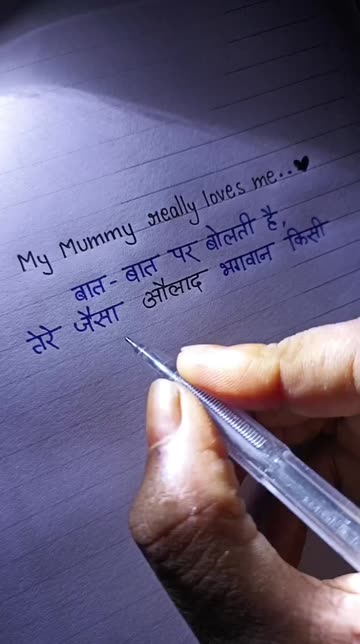 My Mummy really loves me..♥
बात-बात पर बोलती है,
तेरे जैसा औलाद भगवान किसी